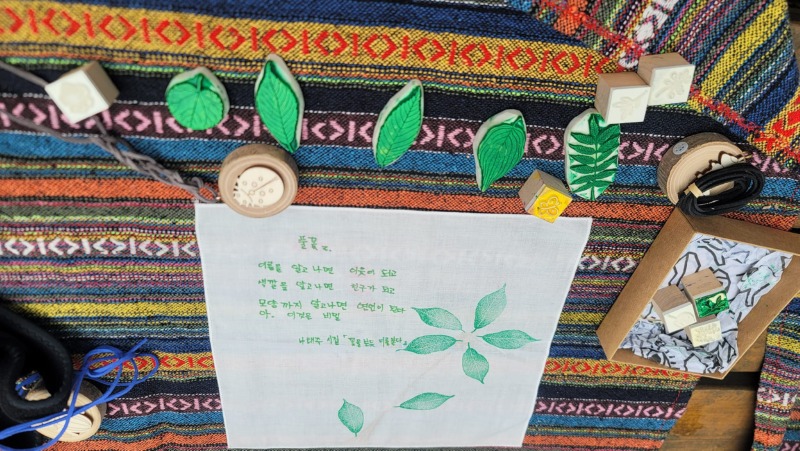 풀꽃 2.
이름을 알고 나면 이웃이 되고
색깔을 알고나면 친구가 되고
모양까지 알고나면 연인이 된다
아, 이것은 비밀
나태주 시집 「꽃을 보듯 너를 본다」